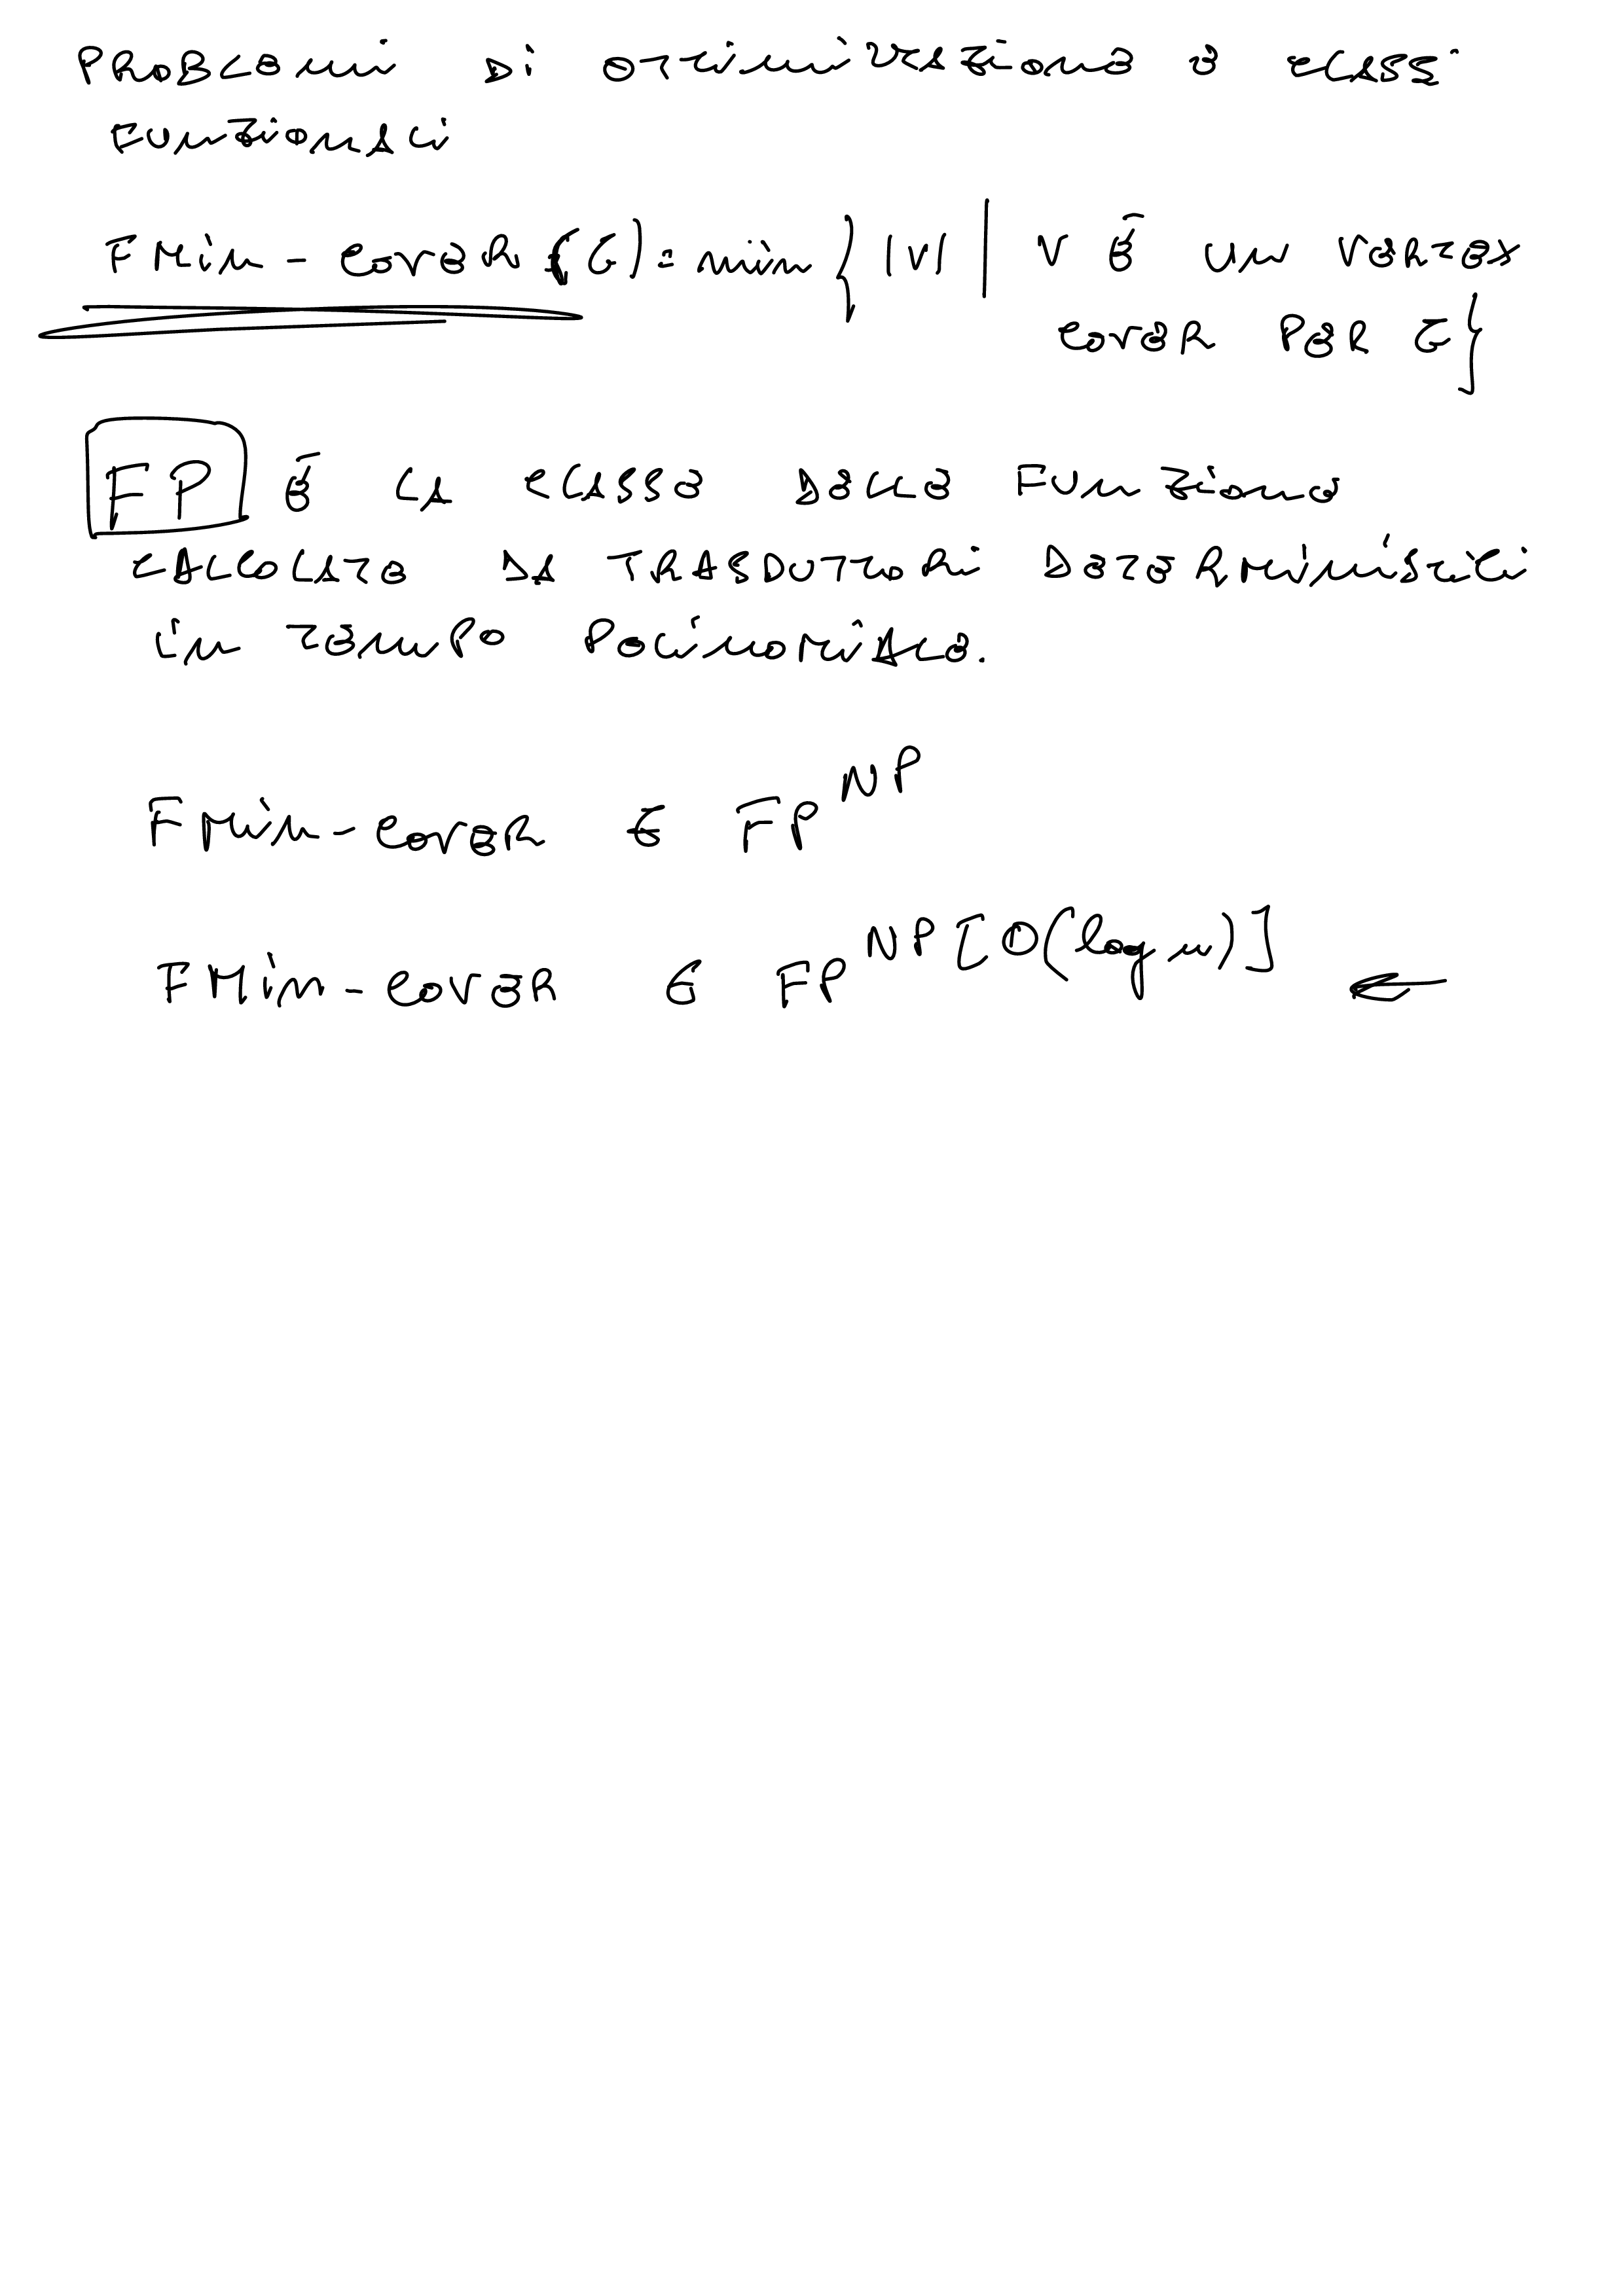 PROBLEMI DI OTTIMIZZAZIONE E CLASSI
FUNZIONALI
FMin-COVER (G) = min { |V| | V È UN VERTEX
COVER PER G }
FP È LA CLASSE DELLE FUNZIONE
CALCOLATE DA TRASDUTTORI DETERMINISTICI
IN TEMPO POLINOMIALE.
FMin-COVER ∈ FP^NP
FMin-COVER ∈ FP^NP[O(log n)] ←